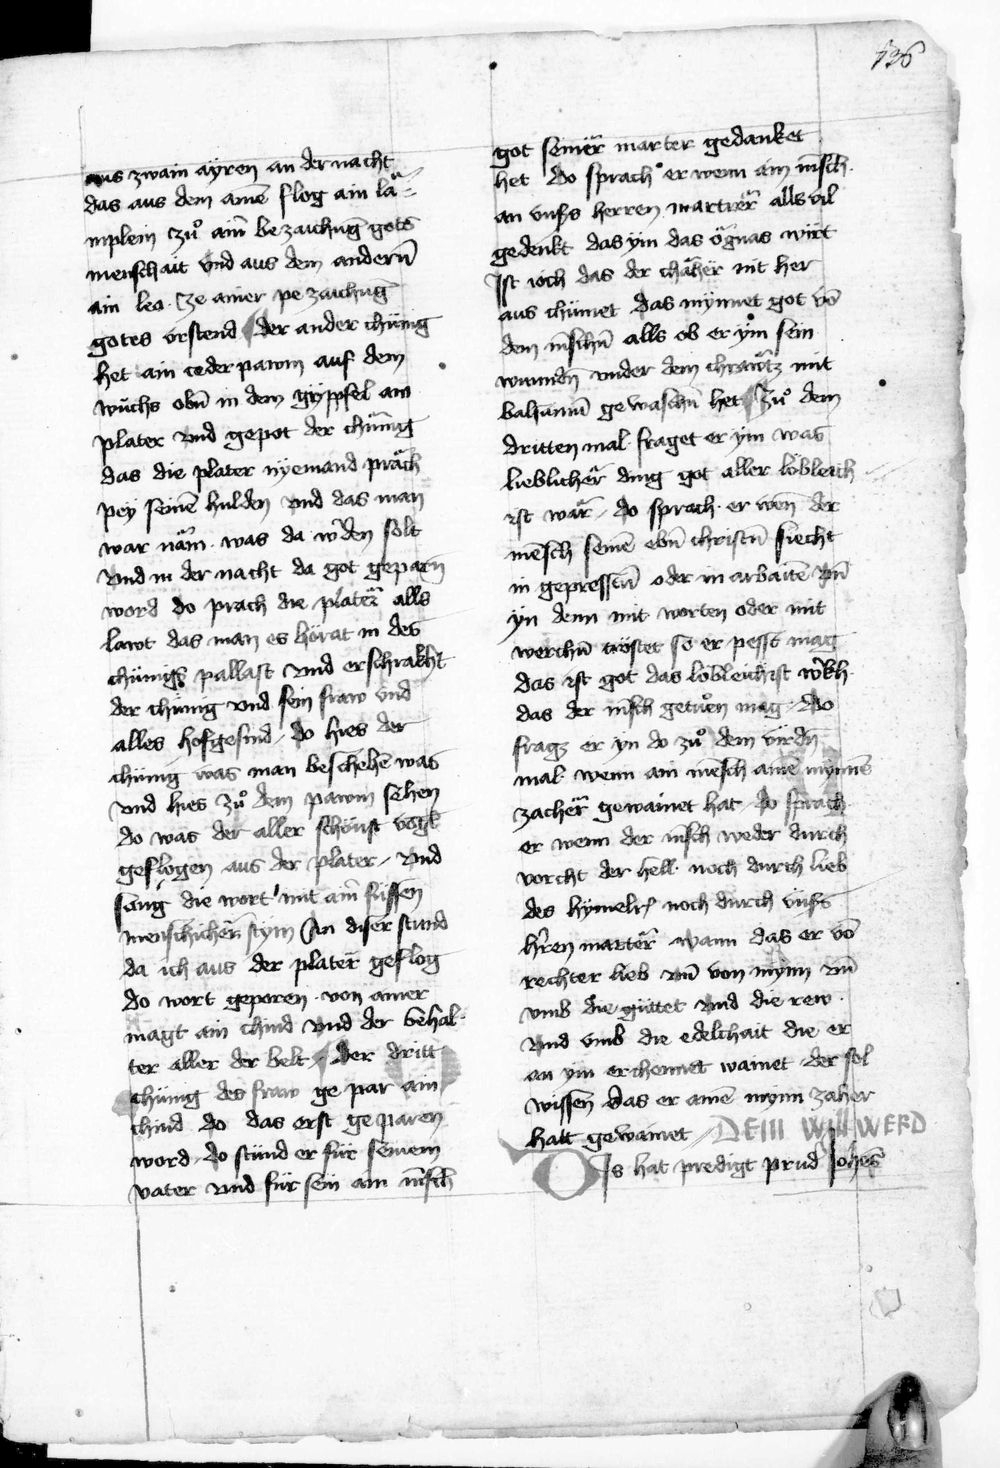 136
aus zwain ayren an der nacht
das aus dem ainē flog ain lä-
mplein zuͦ ainr̄ bezaichnūg gots
menschait vnd aus dem andern̄
ain leo · Ze ainer pe zaichnūg
gotes vrstend der ander chünig
het ain ceder pawm auf dem
wüchs obn̄ in dem gyppfel ain
plater vnd gepot der chünig
das die plater nyemand präch
pey seinē hulden vnd das man
war näm · was da wͤrden solt
vnd in der nacht da got geparn̄
word do prach die plater alls
lawt das man es hörat in des
chünigs pallast vnd erschrakht
der chünig vnd sein fraw vnd
alles hofgesind / do hies der
chünig was man beschehen was
vnd hies zuͦ dem pawm sehen
do was der aller schönst vogl
geflogen aus der plater / vnd
sang die wort mit ainr̄ süssen
menschicher̄ stym An diser stund
da ich aus der plater geflog
do wort geporen · von ainer
magt ain chind vnd der behal-
ter aller der belt / Der dritt
chünig des fraw ge par ain
chind do das erst ge paren
word · do stünd er für seinem
vater vnd für sein ain mēsch
got seiner marter gedanket
het do sprach er wenn ain mēsch ·
an vnsʒs herren martrer alls vil
gedenkt das ym das ögnas wirt
Ist ioch das der chäher nit her
aus chümet das mynnet got vō
dem mēschn̄ alls ob er ym sein
wunndn̄ vnder dem chräwtz mit
balsamm̄ gewaschn̄ het Zuͦ dem
dritten mal fraget er ym was
lieblicher ding got aller löbleich
ist wär / do sprach · er wen̄ der
mēsch seinē ebn̄ christn̄ siecht
in gepressn̄ oder in arbaitē vn̄
yn denn mit worten oder mit
werchn̄ tröstet so er pesst mag
das ist got das löbleichist wͤrkh ·
das der mēsch getuͦen mag · do
fragʒ er yn do zuͦ dem vird̄n
mal wenn ain mēsch ainē mynnē
zacher gewainet hat do sprach
er wenn der mēsch weder durch
vorcht der hell · noch durch lieb
des hymelrʒ noch durch vnsʒs
hr̄en marter wann das er vō
rechter lieb vn̄ von mynn vn̄
vmb die güttet vnd die rew ·
vnd vmb die edelchait die er
an ym erchennet wainet · der sol
wissen das er ainē mynn zaher
hatt gewainet / DEIN WILL WERD
Dis hat predigt prud Johēs